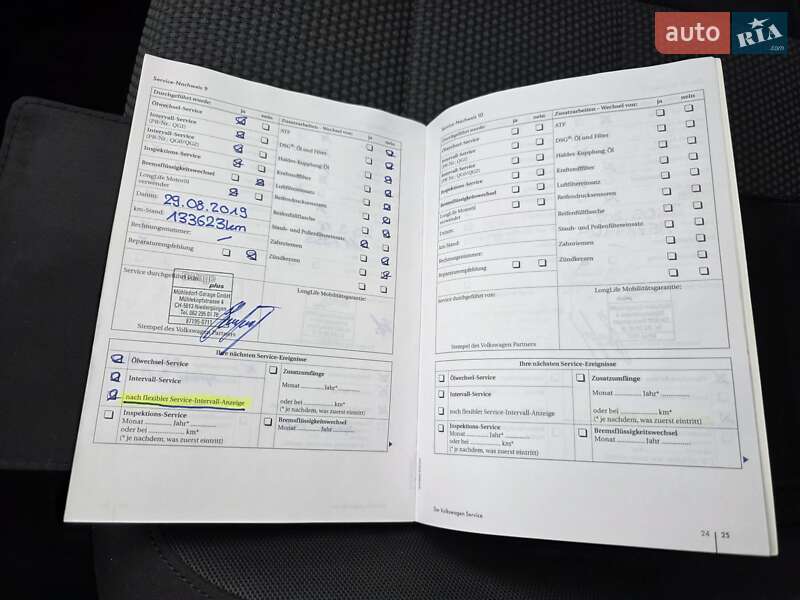 auto RIA .com
Service-Nachweis 9
Durchgeführt wurde: ja nein
Ölwechsel-Service
Intervall-Service
(PR-Nr.: QG1)
Intervall-Service
(PR-Nr.: QG0/QG2)
Inspektions-Service
Bremsflüssigkeitswechsel
LongLife Motoröl
verwendet
Datum: 29.08.2019
km-Stand: 133623km
Rechnungsnummer:
Reparaturempfehlung
Zusatzarbeiten - Wechsel von: ja nein
ATF
DSG®: Öl und Filter
Haldex-Kupplung:Öl
Kraftstofffilter
Luftfiltereinsatz
Reifendrucksensoren
Reifenfüllflasche
Staub- und Pollenfiltereinsatz
Zahnriemen
Zündkerzen
LongLife Mobilitätsgarantie:
Service durchgeführt von:
plus
Mühledorf-Garage GmbH
Mühlekopfstrasse 4
CH-5013 Niedergösgen
Stempel des Volkswagen Partners
Ihre nächsten Service-Ereignisse
Ölwechsel-Service
Intervall-Service
nach flexibler Service-Intervall-Anzeige
Inspektions-Service
Monat ........... Jahr* ...........
oder bei ........... km*
(* je nachdem, was zuerst eintritt)
Zusatzumfänge
Monat ........... Jahr* ...........
oder bei ........... km*
(* je nachdem, was zuerst eintritt)
Bremsflüssigkeitswechsel
Monat ........... Jahr ...........
Service-Nachweis 10
Durchgeführt wurde: ja nein
Ölwechsel-Service
Intervall-Service
(PR-Nr.: QG1)
Intervall-Service
(PR-Nr.: QG0/QG2)
Inspektions-Service
Bremsflüssigkeitswechsel
LongLife Motoröl
verwendet
Datum:
km-Stand:
Rechnungsnummer:
Reparaturempfehlung
Zusatzarbeiten - Wechsel von: ja nein
ATF
DSG®: Öl und Filter
Haldex-Kupplung:Öl
Kraftstofffilter
Luftfiltereinsatz
Reifendrucksensoren
Reifenfüllflasche
Staub- und Pollenfiltereinsatz
Zahnriemen
Zündkerzen
LongLife Mobilitätsgarantie:
Service durchgeführt von:
Stempel des Volkswagen Partners
Ihre nächsten Service-Ereignisse
Ölwechsel-Service
Intervall-Service
nach flexibler Service-Intervall-Anzeige
Inspektions-Service
Monat ........... Jahr* ...........
oder bei ........... km*
(* je nachdem, was zuerst eintritt)
Zusatzumfänge
Monat ........... Jahr* ...........
oder bei ........... km*
(* je nachdem, was zuerst eintritt)
Bremsflüssigkeitswechsel
Monat ........... Jahr ...........
Ihr Volkswagen Service
24 25